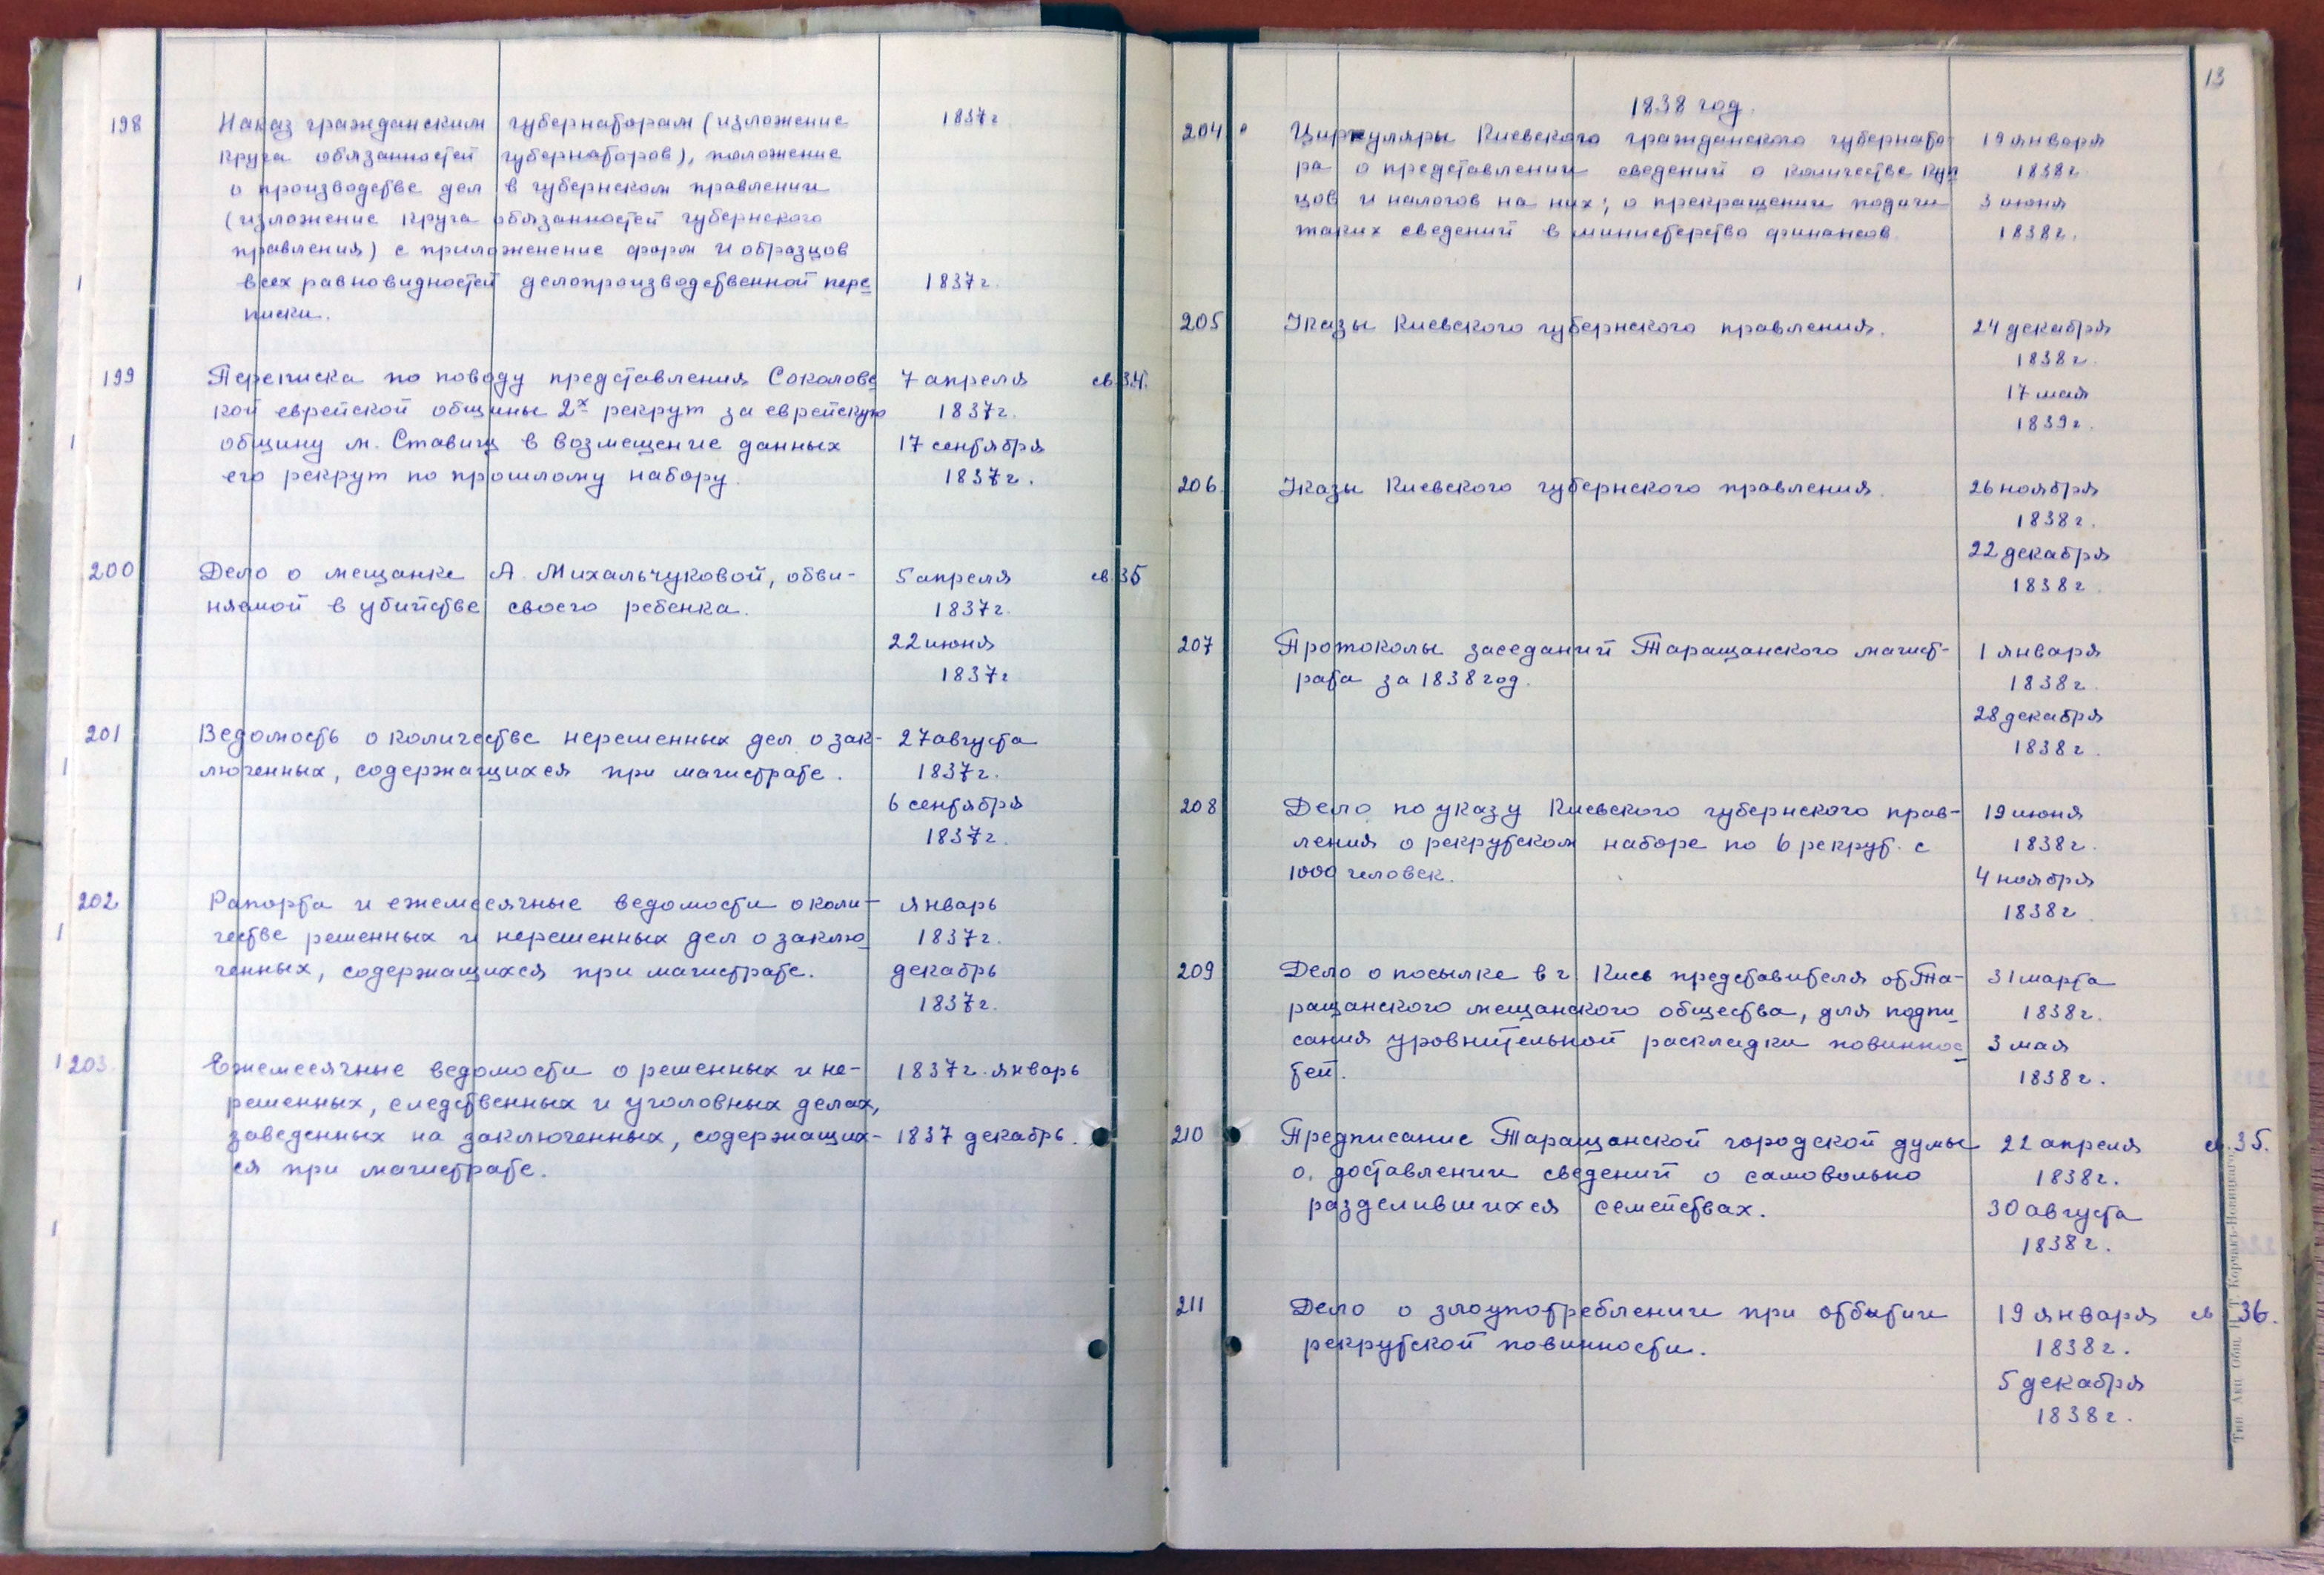 198 Наказ гражданским губернаторам (изложение 1837 г
круга обязанностей губернаторов), положение
о производстве дел в губернском правлении
(изложение круга обязанностей губернского
правления) с приложенение форм и образцов
1 всех разновидностей делопроизводственной пере 1837 г.
писки.
199 Переписка по поводу представления Соколовс 7 апреля св. 34.
кой еврейской общины 2х рекрут за еврейскую 1837 г.
1 общину м. Ставищ в возмещение данных 17 сентября
его рекрут по прошлому набору. 1837 г.
200 Дело о мещанке А. Михальчуковой, обви- 5 апреля св. 35
няемой в убийстве своего ребенка. 1837 г.
22 июня
1837 г
201 Ведомость о количестве нерешенных дел о зак- 27 августа
1 люченных, содержащихся при магистрате. 1837 г.
6 сентября
1837 г.
202 Рапорта и ежемесячные ведомости о коли- январь
1 честве решенных и нерешенных дел о заклю 1837 г.
ченных, содержащихся при магистрате. декабрь
1837 г.
1 203. Ежемесячные ведомости о решенных и не- 1837 г. январь
решенных, следственных и уголовных делах,
заведенных на заключенных, содержащих- 1837 декабрь.
ся при магистрате.
1
13
1838 год.
204 Циркуляры Киевского гражданского губернато 19 января
ра о представлении сведений о количестве куп 1838 г.
цов и налогов на них; о прекращении подачи 3 июня
таких сведений в министерство финансов. 1838 г.
205 Указы Киевского губернского правления. 24 декабря
1838 г.
17 мая
1839 г.
206. Указы Киевского губернского правления. 26 ноября
1838 г.
22 декабря
1838 г.
207 Протоколы заседаний Таращанского магист- 1 января
рата за 1838 год. 1838 г.
28 декабря
1838 г.
208 Дело по указу Киевского губернского прав- 19 июня
ления о рекрутском наборе по 6 рекрут. с 1838 г.
1000 человек. 4 ноября
1838 г.
209 Дело о посылке в г. Киев представителя от Та- 31 марта
ращанского мещанского общества, для подпи 1838 г.
сания уровнительной раскладки повиннос 3 мая
тей. 1838 г.
210 Предписание Таращанской городской думы 22 апреля св. 35.
о. доставлении сведений о самовольно 1838 г.
разделившихся семействах. 30 августа
1838 г.
211 Дело о злоупотреблении при отбытии 19 января св 36.
рекрутской повинности. 1838 г.
5 декабря
1838 г.
Тип. Акц. Общ. Н. Т. Корчакъ-Новицкаго